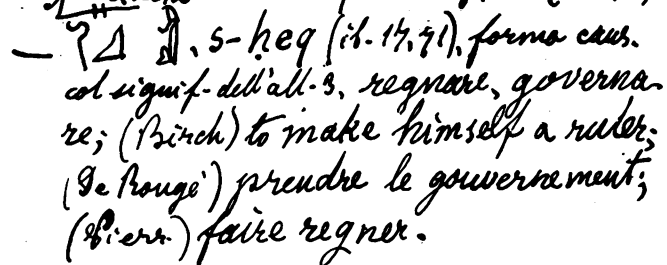 — s-ḥeq (ib. 17, 71), forma caus.
col signif. dell'all. 3, regnare, governa-
re; (Birch) to make himself a ruler;
(De Rougé) prendre le gouvernement;
(Pierr.) faire regner.